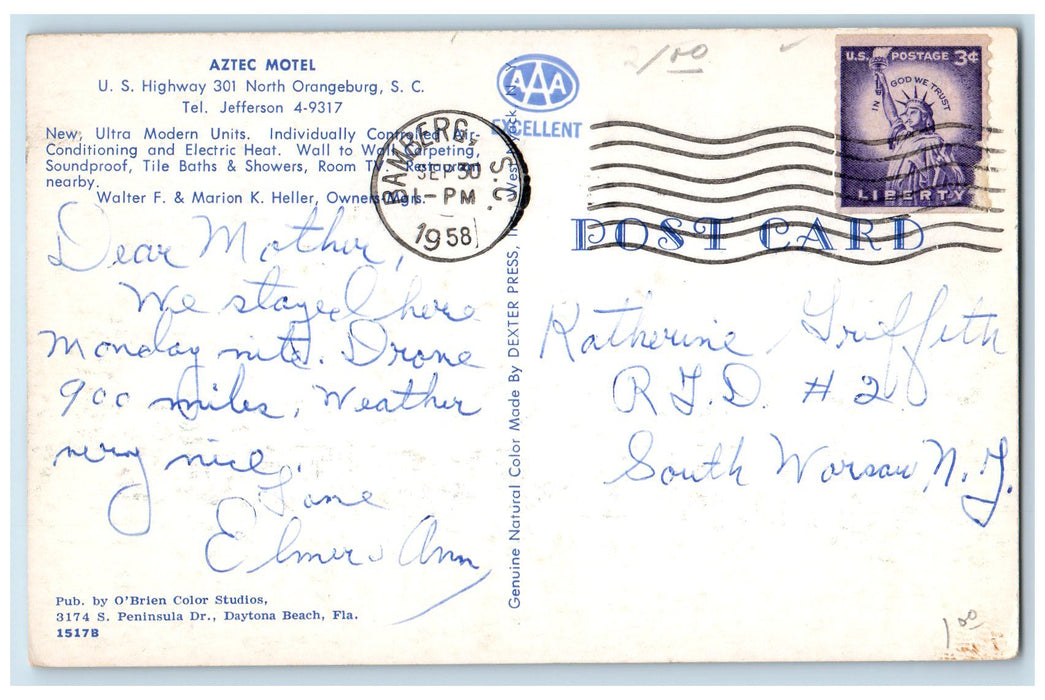 AZTEC MOTEL
U. S. Highway 301 North Orangeburg, S. C.
Tel. Jefferson 4-9317
New, Ultra Modern Units. Individually Controlled Air-
Conditioning and Electric Heat. Wall to Wall Carpeting,
Soundproof, Tile Baths & Showers, Room TV. Restaurant
nearby.
Walter F. & Marion K. Heller, Owners-Mgrs.
Dear Mother,
We stayed here
Monday nite. Drove
900 miles. Weather
very nice.
Love
Elmer & Ann
Pub. by O'Brien Color Studios,
3174 S. Peninsula Dr., Daytona Beach, Fla.
1517B
Genuine Natural Color Made By DEXTER PRESS, West N. Y.
AAA
EXCELLENT
BAMBERG, S.C.
SEP 30
1-PM
1958
2/00
U.S. POSTAGE 3¢
IN GOD WE TRUST
LIBERTY
POST CARD
Katherine Griffeth
R.F.D. #2
South Warsaw N.Y.
1 00